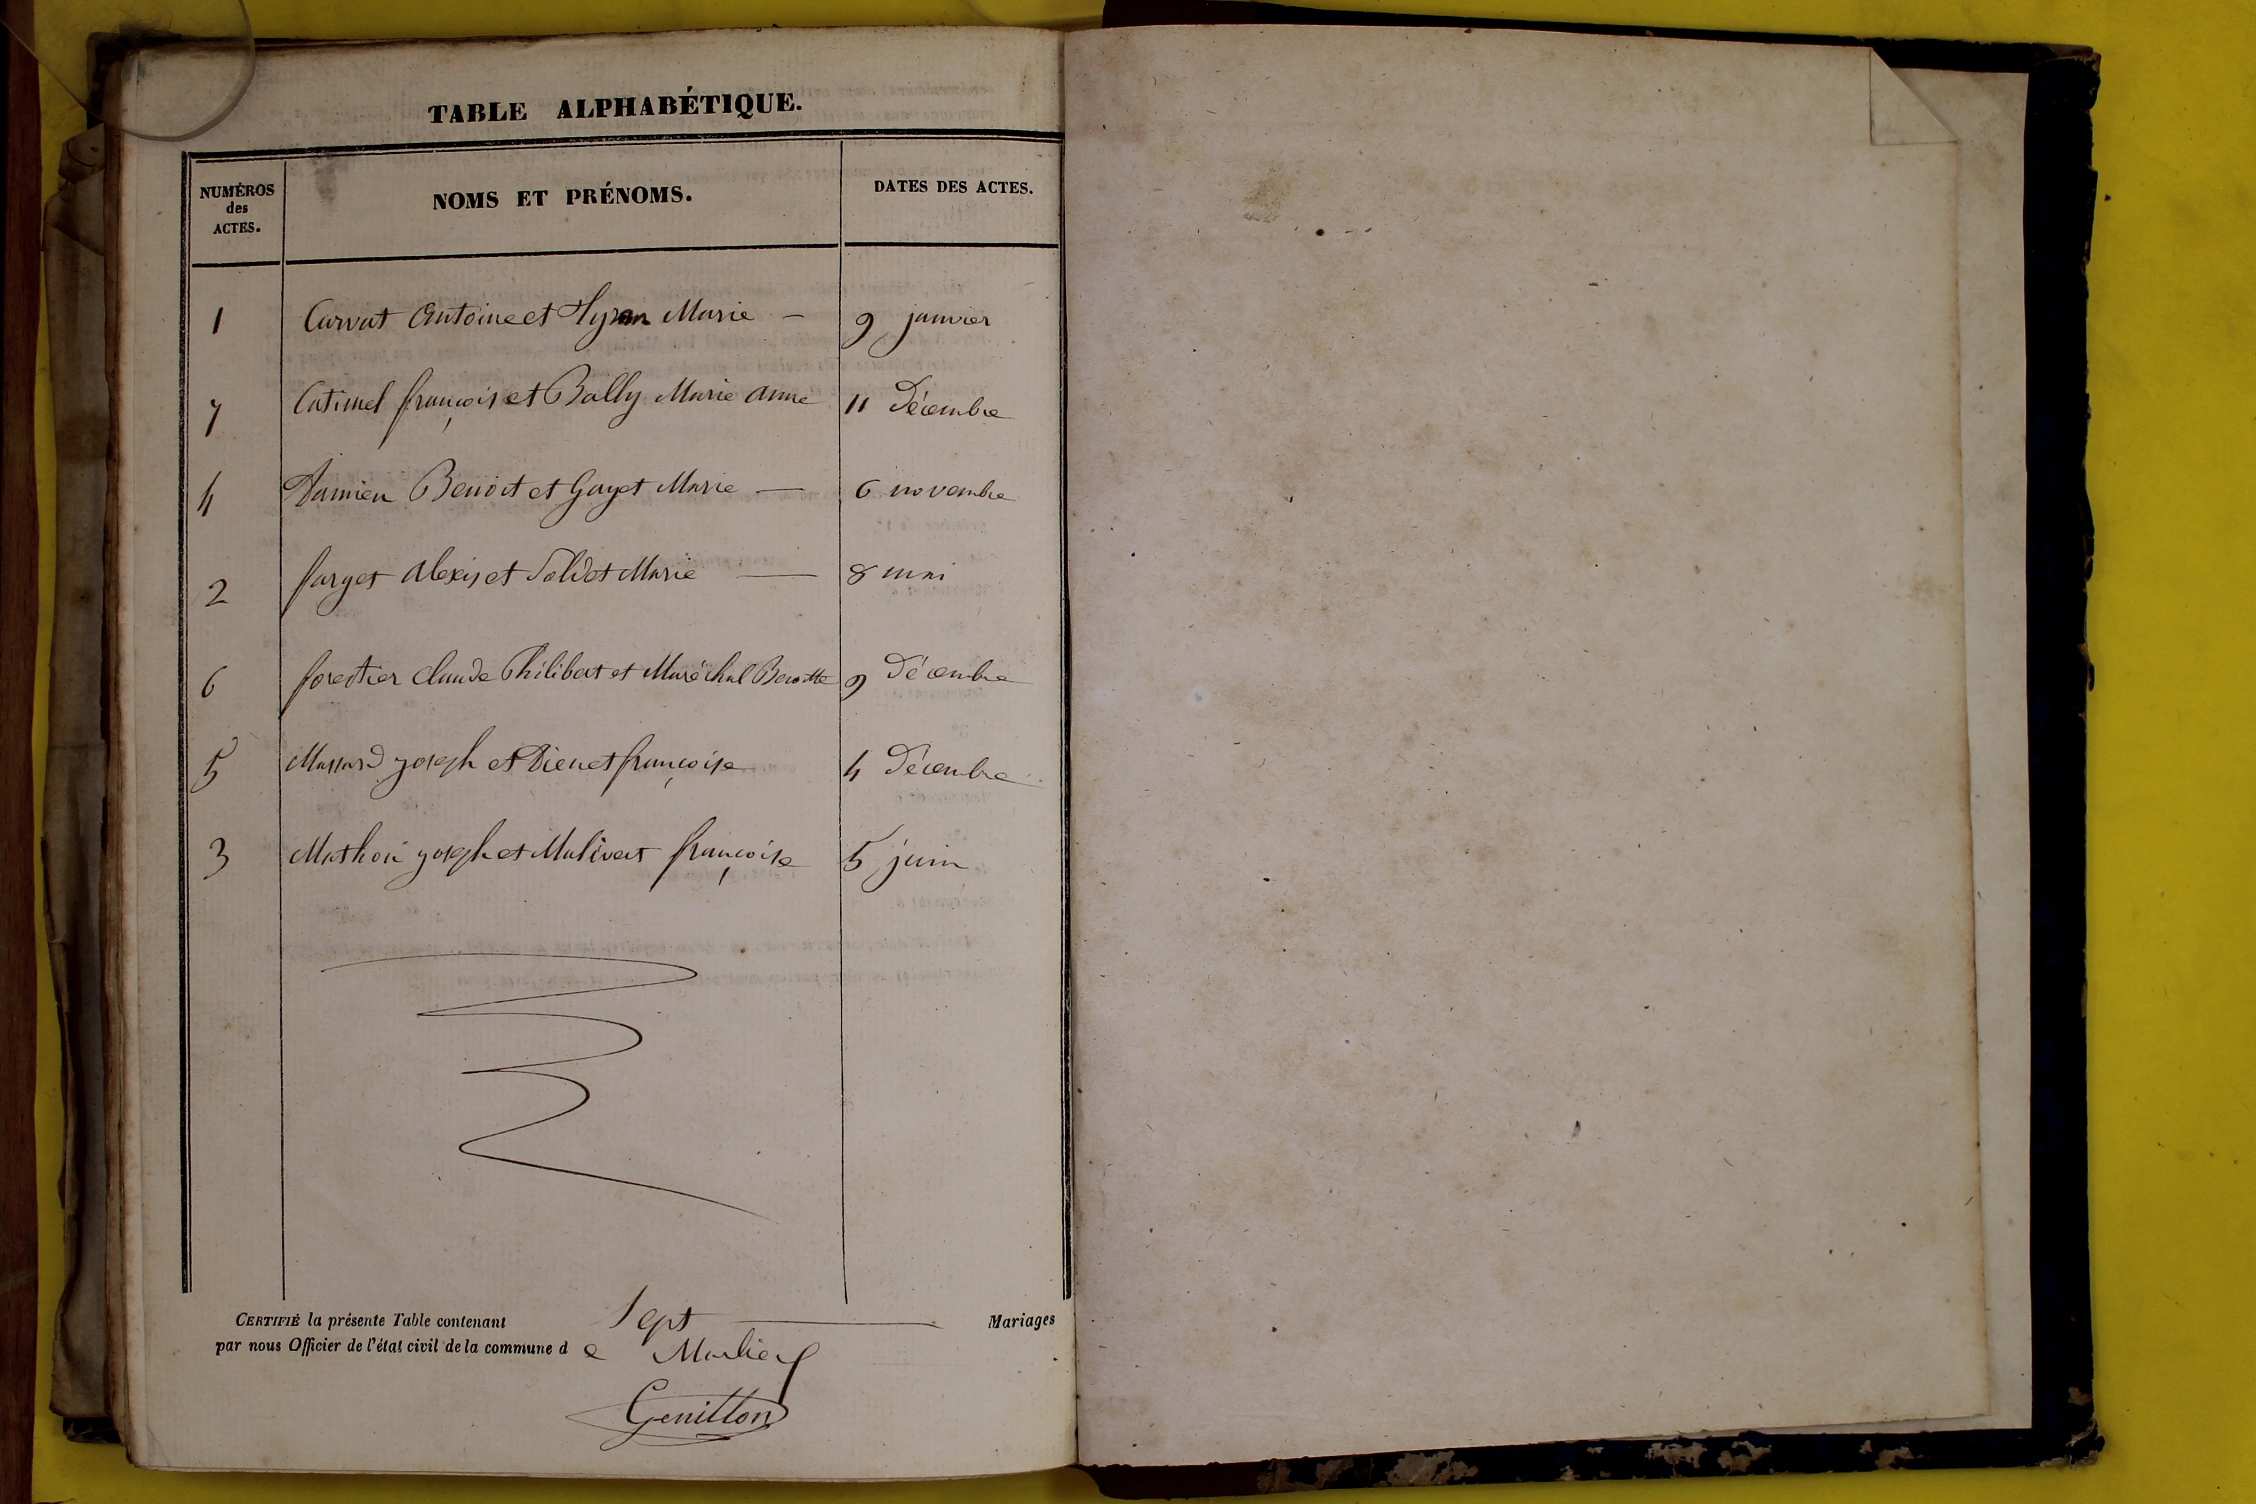 TABLE ALPHABÉTIQUE.
NUMÉROS
des
ACTES.
NOMS ET PRÉNOMS.
DATES DES ACTES.
1 Carvat Antoine et Marie — 9 janvier
7 Catimel françois et Bailly Marie Anne 11 Décembre
4 Damien Benoit et Gayet Marie — 6 novembre
2 farget Alexis et Marie — 8 mai
6 forestier Claude Philibert et Maréchal Benoitte 9 Décembre
5 Massard joseph et Dienet françoise 4 Décembre
3 Mathon joseph et Malivert françoise 5 juin
CERTIFIÉ la présente Table contenant Sept — Mariages
par nous Officier de l'état civil de la commune d e Marlieux
Genitton